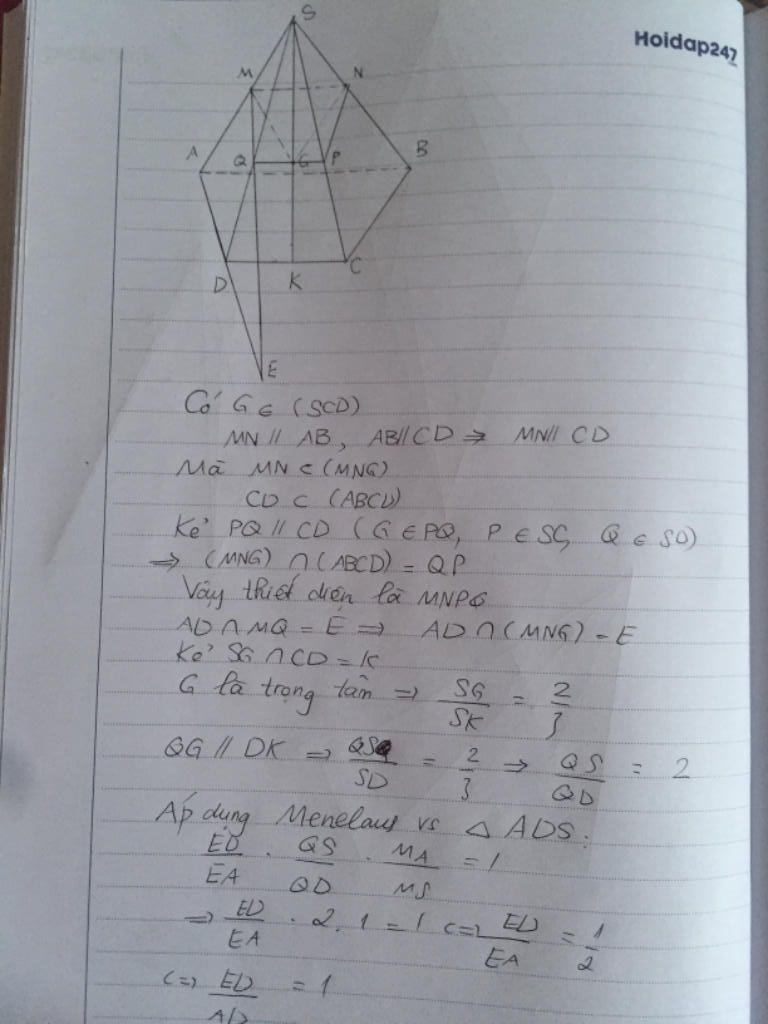 Hoidap247
S
M N
A Q G P B
D K C
E
Có G ∈ (SCD)
MN // AB, AB // CD ⇒ MN // CD
Mà MN ⊂ (MNG)
CD ⊂ (ABCD)
Kẻ PQ // CD (G ∈ PQ, P ∈ SC, Q ∈ SD)
⇒ (MNG) ∩ (ABCD) = QP
Vậy thiết diện là MNPQ
AD ∩ MQ = E ⇒ AD ∩ (MNG) = E
Kẻ SG ∩ CD = K
G là trọng tâm ⇒ SG/SK = 2/3
QG // DK ⇒ QS/SD = 2/3 ⇒ QS/QD = 2
Áp dụng Menelaus vs △ ADS:
ED/EA . QS/QD . MA/MS = 1
⇒ ED/EA . 2 . 1 = 1 <=> ED/EA = 1/2
<=> ED/AD = 1